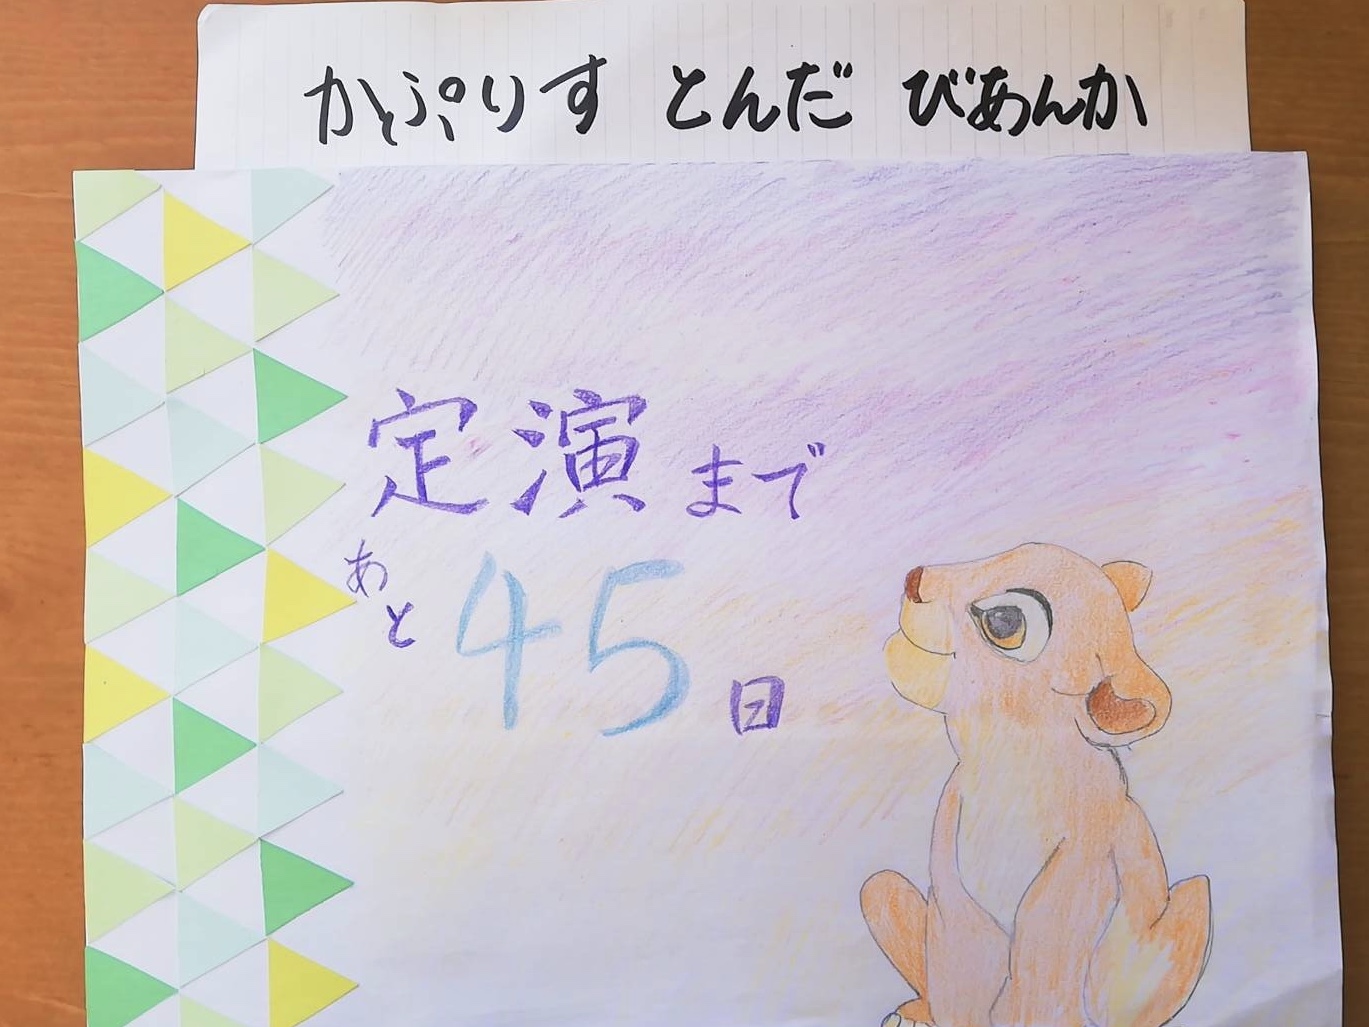 かぷりす とんだ びあんか
定演まで
あと45日